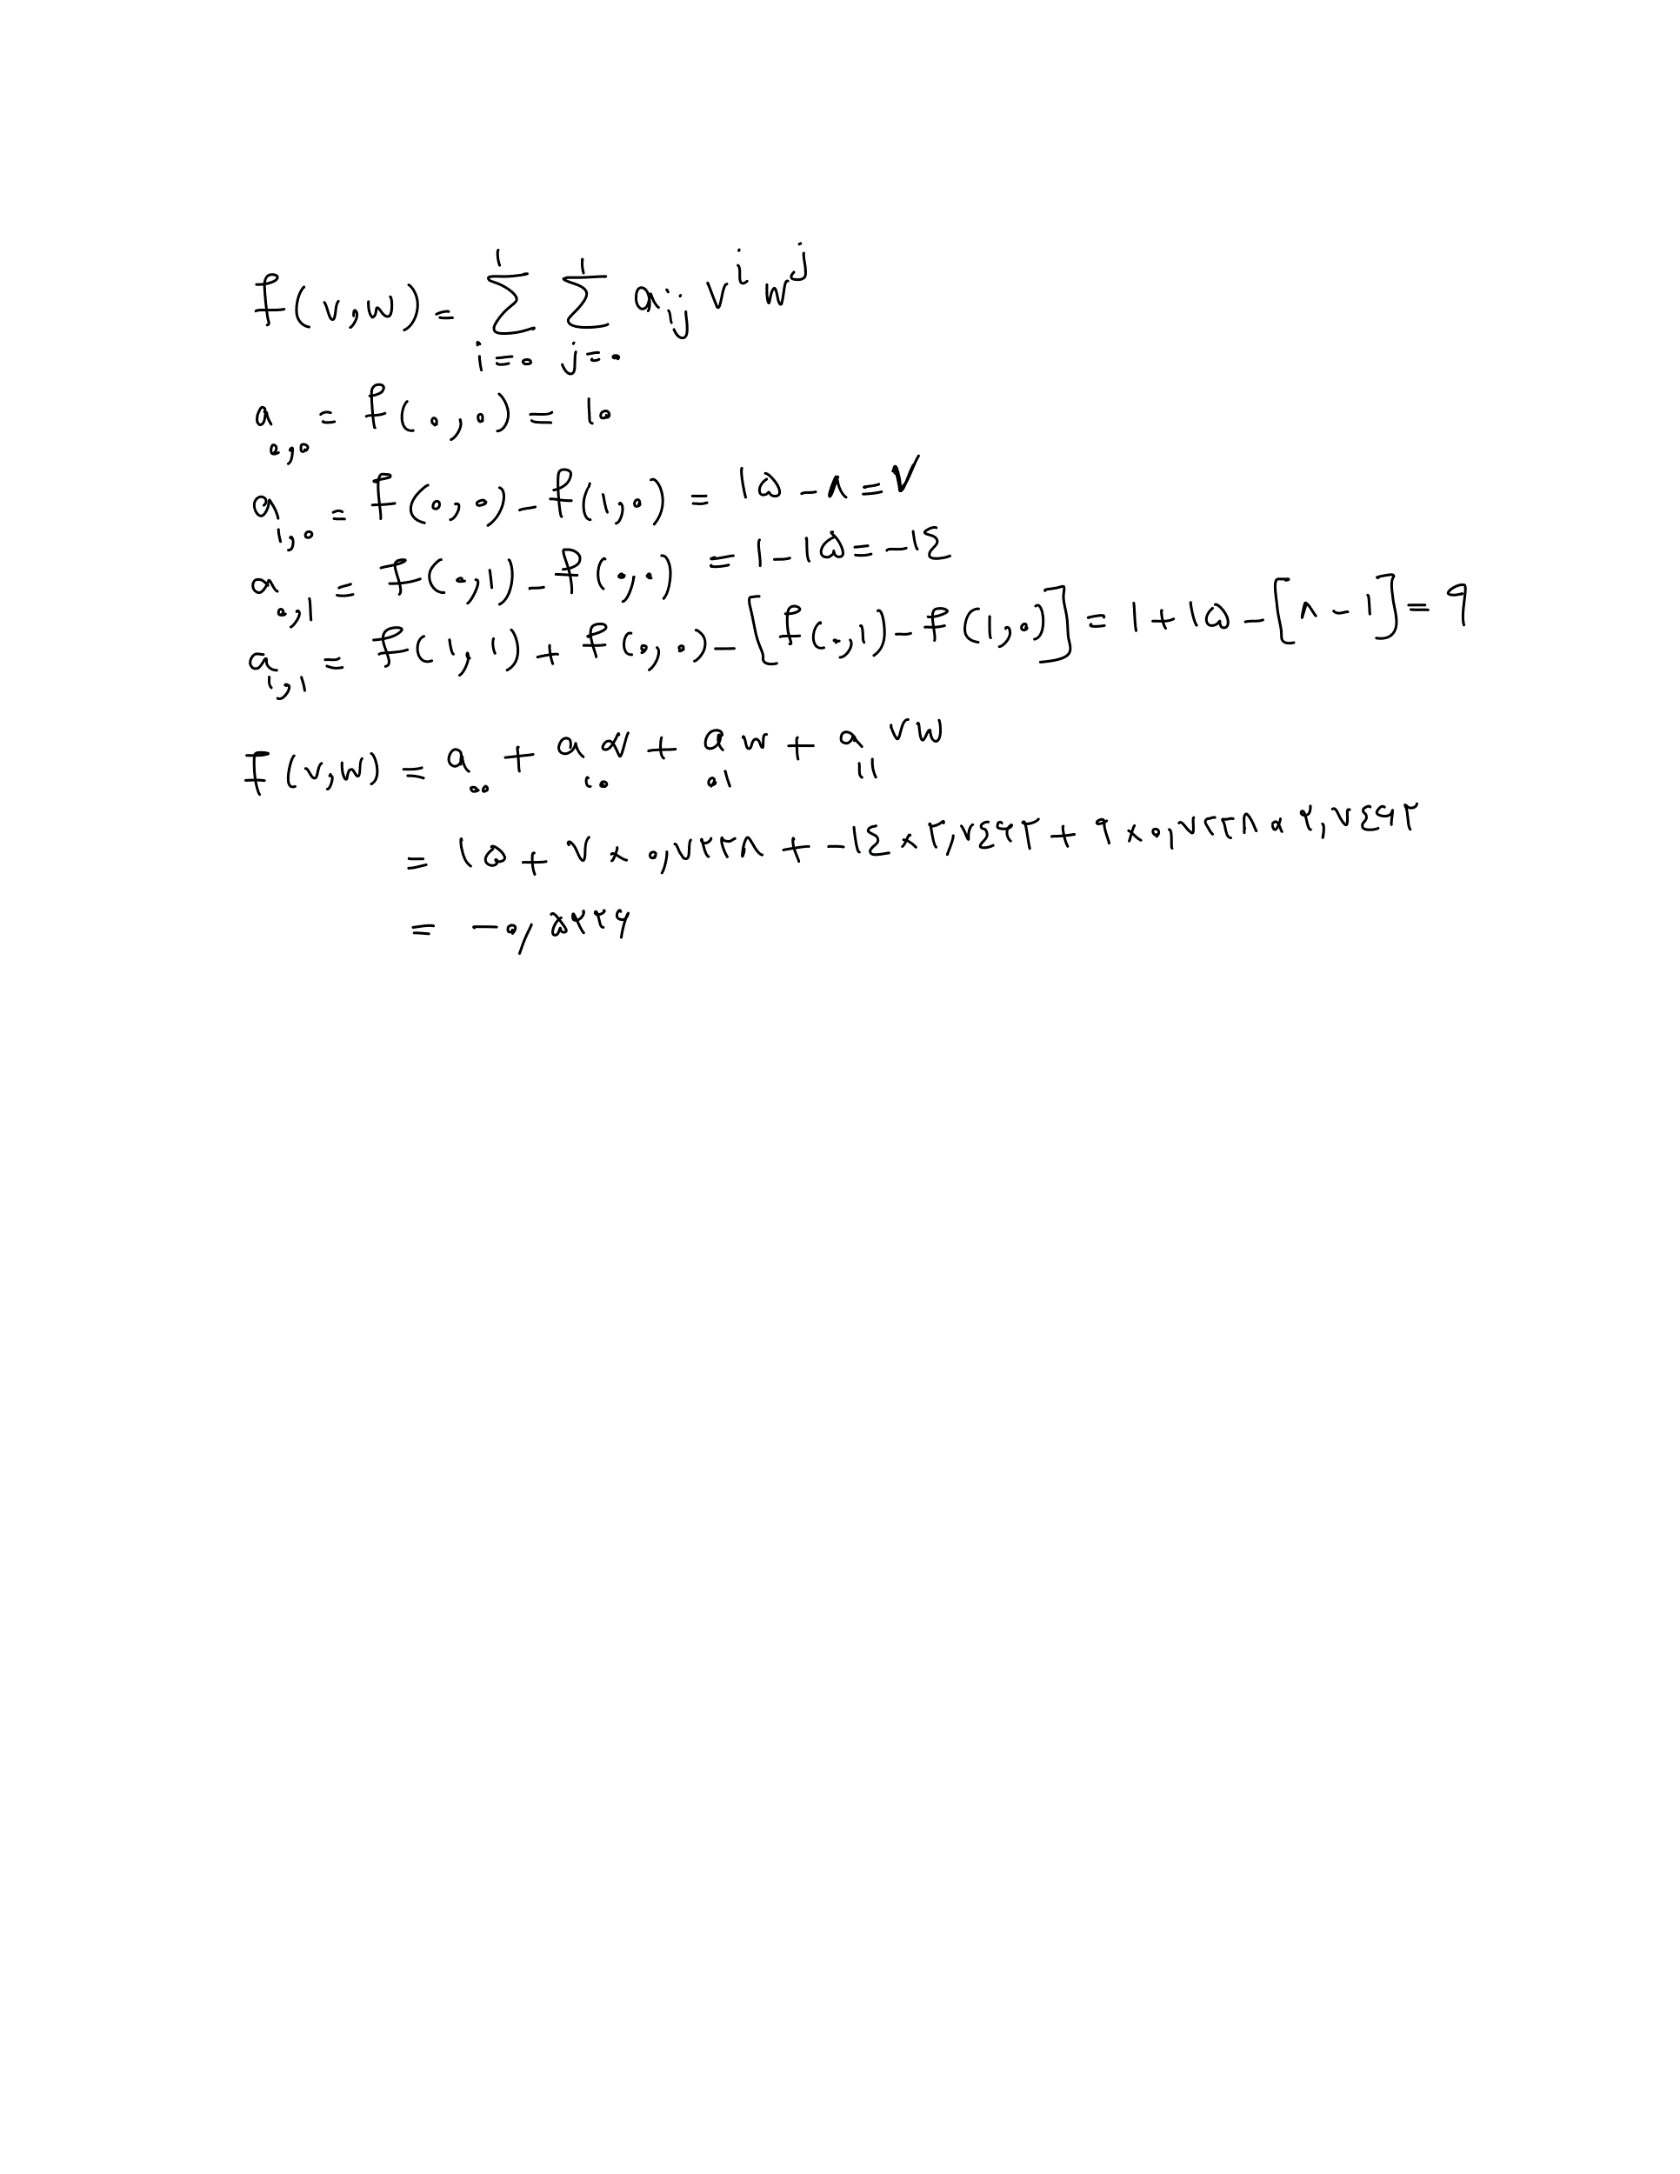 f(v,w) = \sum_{i=۰}^{۱} \sum_{j=۰}^{۱} a_{ij} v^i w^j
a_{۰,۰} = f(۰,۰) = ۱۰
a_{۱,۰} = f(۰,۰) - f(۱,۰) = ۱۵ - ۸ = ۷
a_{۰,۱} = f(۰,۱) - f(۰,۰) = ۱ - ۱۵ = -۱۴
a_{۱,۱} = f(۱,۱) + f(۰,۰) - [f(۰,۱) - f(۱,۰)] = ۱ + ۱۵ - [۸ - ۱] = ۹
f(v,w) = a_{۰۰} + a_{۱۰} v + a_{۰۱} w + a_{۱۱} vw
= ۱۵ + ۷ × ۰,۷۲۲۸ + -۱۴ × ۲,۷۴۶۲ + ۹ × ۰,۷۲۲۸ × ۲,۷۴۶۲
= -۰,۵۲۲۶